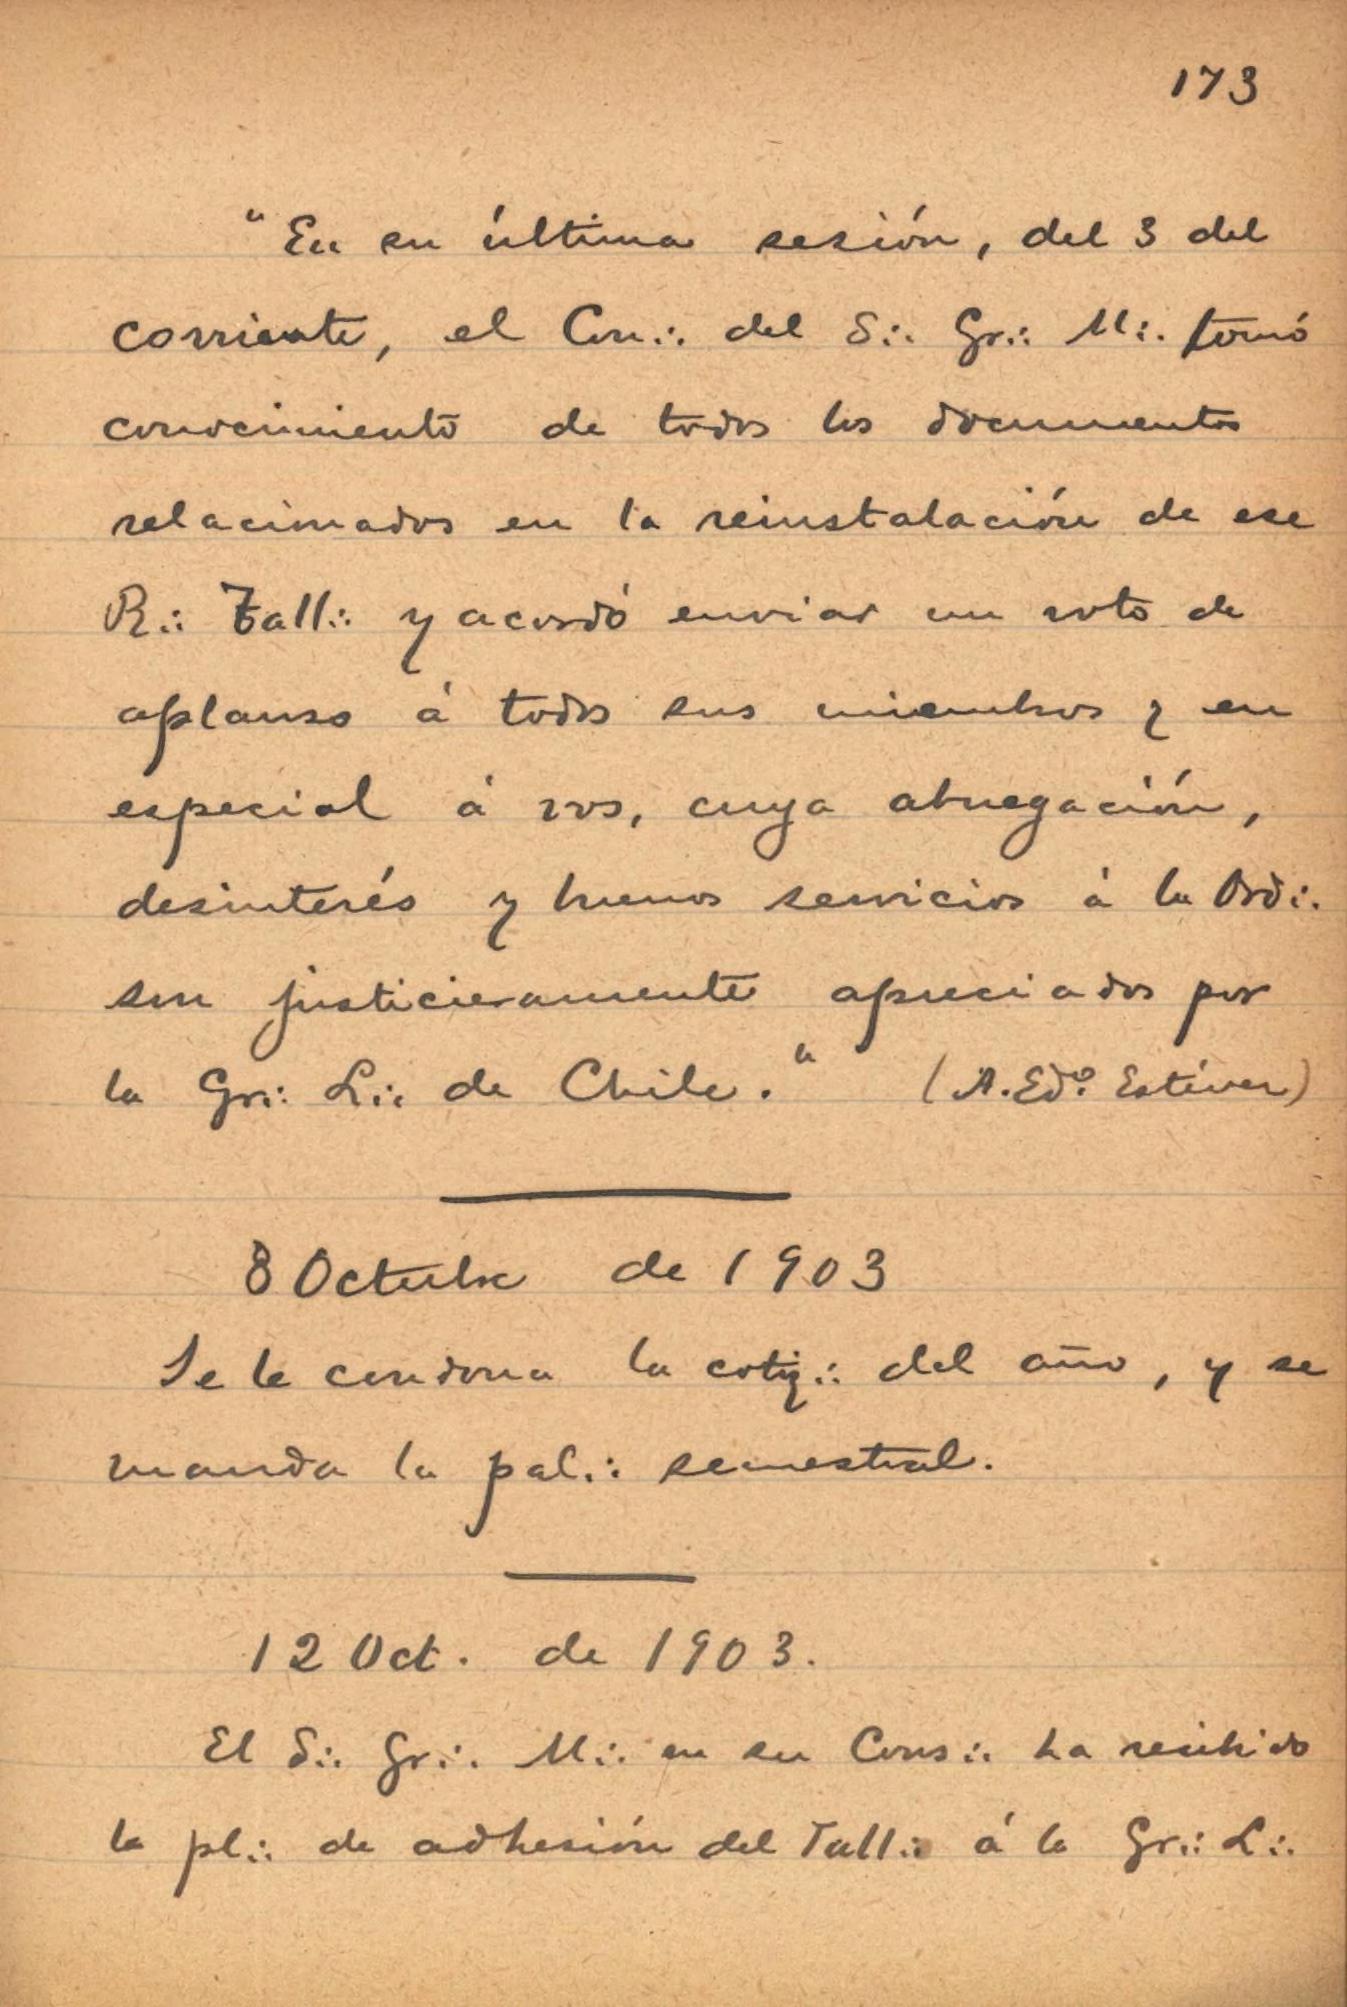 173
"En su última sesión, del 3 del
corriente, el Con∴ del S∴ Gr∴ M∴ tomó
conocimiento de todos los documentos
relacionados en la reinstalación de ese
R∴ Tall∴ y acordó enviar un voto de
aplauso á todos sus miembros y en
especial á vos, cuya abnegación,
desinterés y buenos servicios á la Ord∴
son justicieramente apreciados por
la Gr∴ L∴ de Chile." (A. Edo. Estéver)
8 Octubre de 1903
Se le condona la cotiz∴ del año, y se
manda la pal∴ semestral.
12 Oct. de 1903.
El S∴ Gr∴ M∴ en su Cons∴ ha recibido
la pl∴ de adhesión del Tall∴ á la Gr∴ L∴